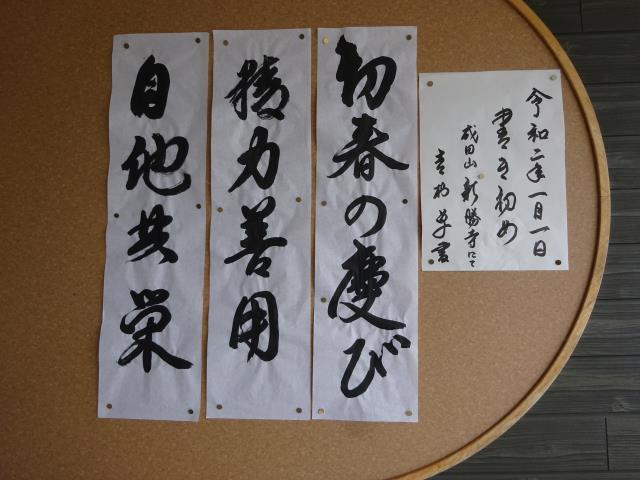 令和二年一月一日
書き初め
成田山新勝寺にて
初春の慶び
精力善用
自他共栄